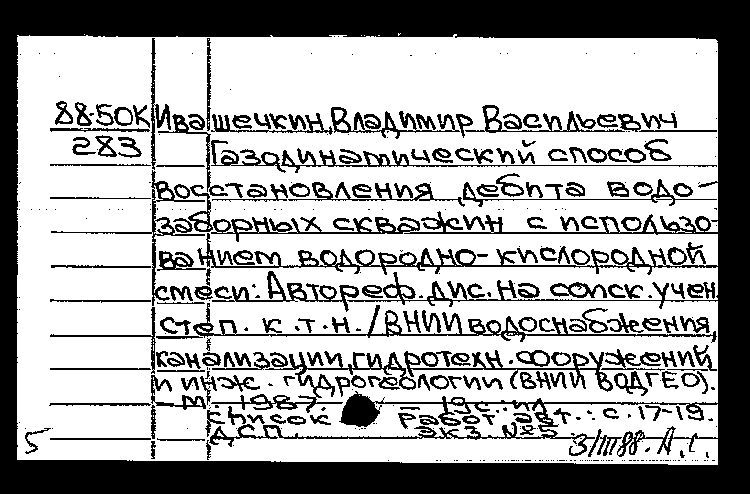 88-50К Ивашечкин, Владимир Васильевич
283 Газодинамический способ
восстановления дебита водо-
заборных скважин с использо-
ванием водородно-кислородной
смеси: Автореф. дис. на соиск. учен.
степ. к.т.н. / ВНИИ водоснабжения,
канализации, гидротехн. сооружений
и инж. гидрогеологии (ВНИИ ВОДГЕО).
- М., 1987. - 19 с.: ил
Список работ авт.: с. 17-19.
Д.С.П. Экз. №
5 3/III 88. А.С.